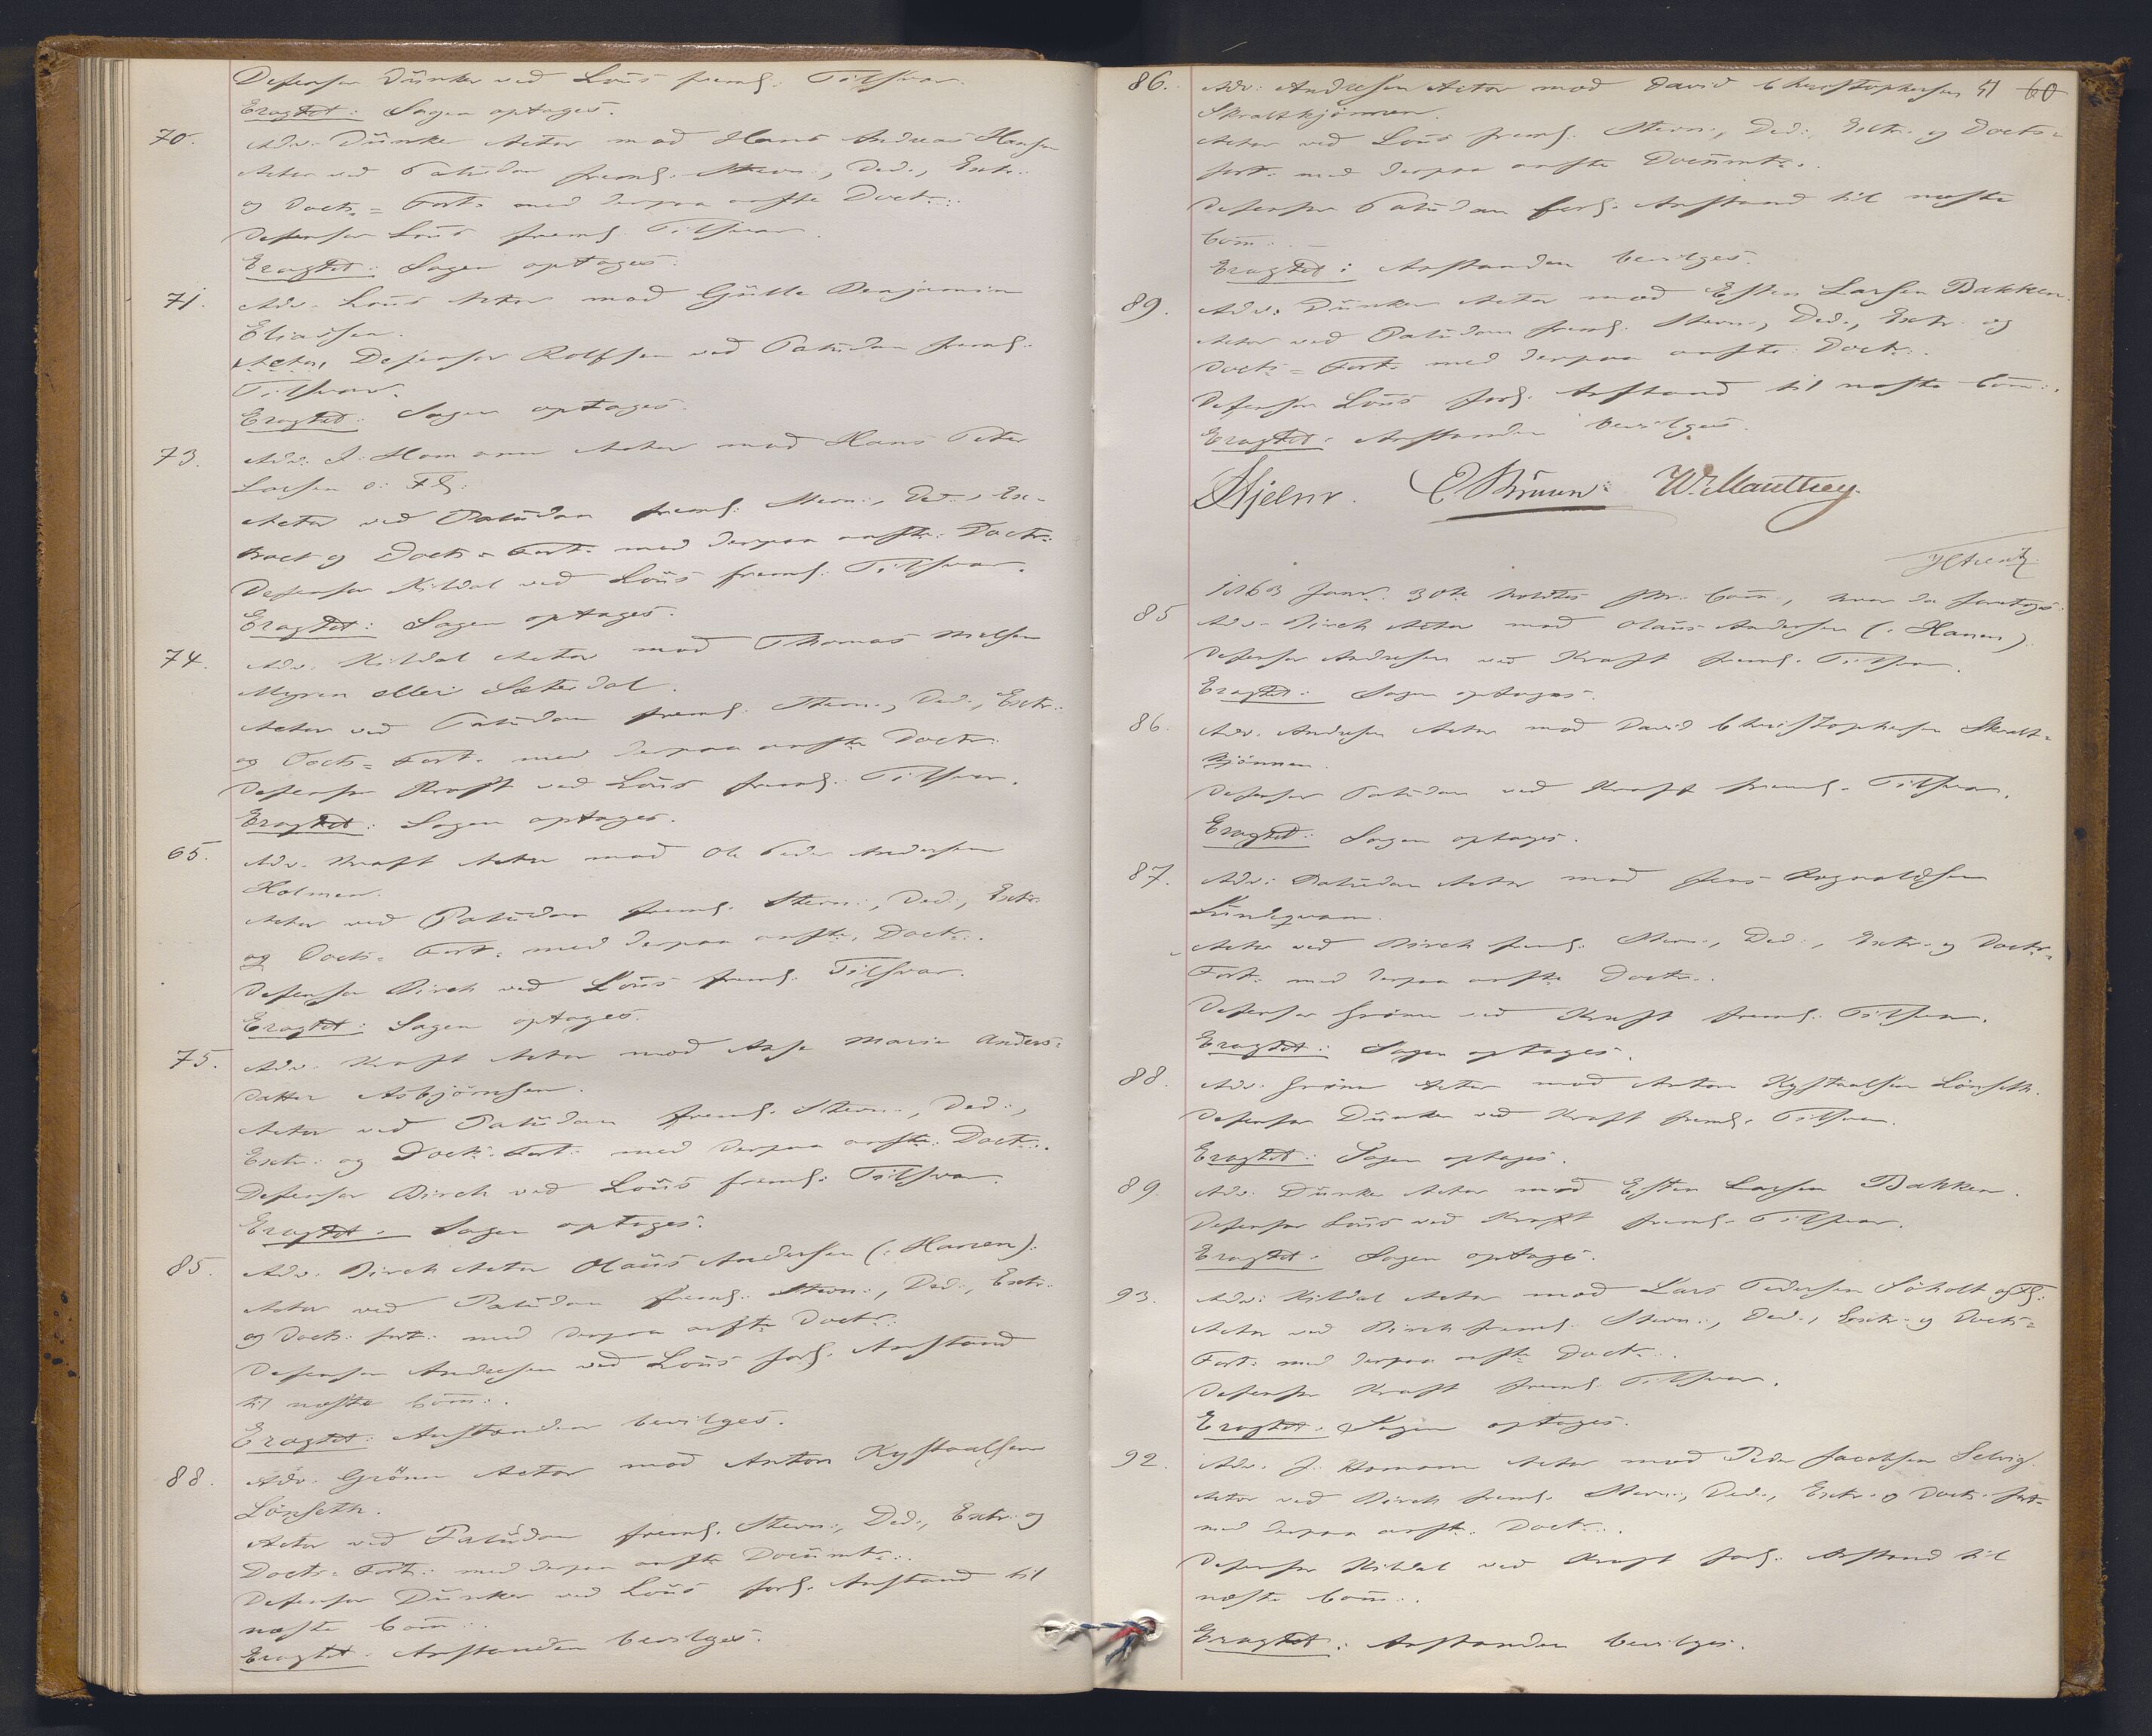 Defensor Dünker ved Lous freml: Tilsvar.
Eragtet: Sagen optages.
70. Adv. Dünker Actor mod Hans Andreas Hansen
Actor ved Paludan freml: Stevn:, Ded:, Extr:
og Docts= Fort: med derpaa anførte Doctr:
Defensor Lous freml: Tilsvar.
Eragtet: Sagen optages.
71. Adv. Lous Actor mod Gülle Benjamin
Eliassen.
Defensor Rolfsen ved Paludan freml:
Tilsvar.
Eragtet: Sagen optages.
73. Adv: J. Homann Actor mod Hans Peter
Larsen o: Fl:
Actor ved Paludan freml: Stevn:, Ded:, Ex-
tract og Docts= Fort: med derpaa anførte Doctr:
Defensor Kildal ved Lous freml: Tilsvar.
Eragtet: Sagen optages.
74. Adv. Kildal Actor mod Thomas Nielsen
Myren eller Sæterdal.
Actor ved Paludan freml: Stevn:, Ded:, Extr:
og Docts= Fort: med derpaa anførte Doctr:
Defensor Kraft ved Lous freml: Tilsvar.
Eragtet: Sagen optages.
65. Adv. Kraft Actor mod Ole Peder Andersen
Holmen.
Actor ved Paludan freml: Stevn:, Ded:, Extr:
og Docts= Fort: med derpaa anførte Doctr:.
Defensor Birch ved Lous freml: Tilsvar.
Eragtet: Sagen optages.
75. Adv. Kraft Actor mod Marie Anders=
datter Asbjörnsen.
Actor ved Paludan freml: Stevn:, Ded:,
Extr: og Docts: Fort: med derpaa anførte Doctr:.
Defensor Birch ved Lous freml: Tilsvar.
Eragtet: Sagen optages.
85. Adv. Birch Actor Olaus Andersen (: Hanen):
Actor ved Paludan freml: Stevn:, Ded:, Extr:
og Docts: fort: med derpaa anførte Doctr:
Defensor Andresen ved Lous forl: Anstand
til næste Com̄:.
Eragtet: Anstanden bevilges.
88. Adv. Grönn Actor mod Anton Kystaalsen
Lönseth.
Actor ved Paludan freml: Stevn:, Ded:, Extr: og
Docts= Fort: med derpaa anførte Documtr:.
Defensor Dünker ved Lous forl: Anstand til
næste Com̄:.
Eragtet: Anstanden bevilges.
60
86. Adv: Andresen Actor mod David Christophersen
Skraltkjönnen.
Actor ved Lous freml: Stevn:, Ded:, Extr: og Docts=
fort: med derpaa anførte Documtr:.
Defensor Paludan forl: Anstand til næste
Com̄:.
Eragtet: Anstanden bevilges.
89. Adv: Dünker Actor mod Esten Larsen Bakken.
Actor ved Paludan freml: Stevn:, Ded:, Extr: og
Docts= Fort: med derpaa anførte Doctr:.
Defensor Lous forl: Anstand til næste Com̄:.
Eragtet: Anstanden bevilges.
Hjelm. E Bruun: W. Manthey.
1863 Janr: 30te holdtes Com̄:, hvor da foretoges:
85 Adv. Birch Actor mod Olaus Andersen (: Hanen).
Defensor Andresen ved Kraft freml: Tilsvar.
Eragtet: Sagen optages.
86. Adv. Andresen Actor mod David Christophersen Skralt=
kjönnen.
Defensor Paludan ved Kraft freml: Tilsvar.
Eragtet: Sagen optages.
87. Adv: Paludan Actor mod Jens Ragnvaldsen
Lundqvam.
Actor ved Birch freml: Stevn:, Ded:, Extr: og Docts=
Fort: med derpaa anførte Doctr:.
Defensor Grönn ved Kraft freml: Tilsvar.
Eragtet: Sagen optages.
88. Adv. Grönn Actor mod Anton Kystaalsen Lönseth.
Defensor Dünker ved Kraft freml: Tilsvar.
Eragtet: Sagen optages.
89. Adv: Dünker Actor mod Esten Larsen Bakken.
Defensor Lous ved Kraft freml: Tilsvar.
Eragtet: Sagen optages.
93. Adv: Kildal Actor mod Lars Pedersen Söholt og Fl:
Actor ved Birch freml: Stevn:, Ded:, Extr: og Docts=
Fort: med derpaa anførte Doctr:.
Defensor Kraft freml: Tilsvar.
Eragtet: Sagen optages.
92. Adv. J. Homann Actor mod Peder Jacobsen Selvig.
Actor ved Birch freml: Stevn:, Ded:, Extr: og Docts: fort=
med derpaa anførte Doctr:.
Defensor Kildal ved Kraft forl: Anstand til
næste Com̄:.
Eragtet: Anstanden bevilges.